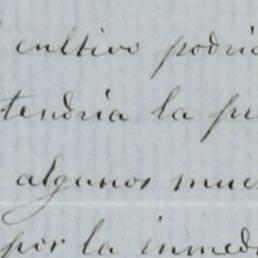 cultivo podria
tendria la pr
algunos mues
por la inmedi